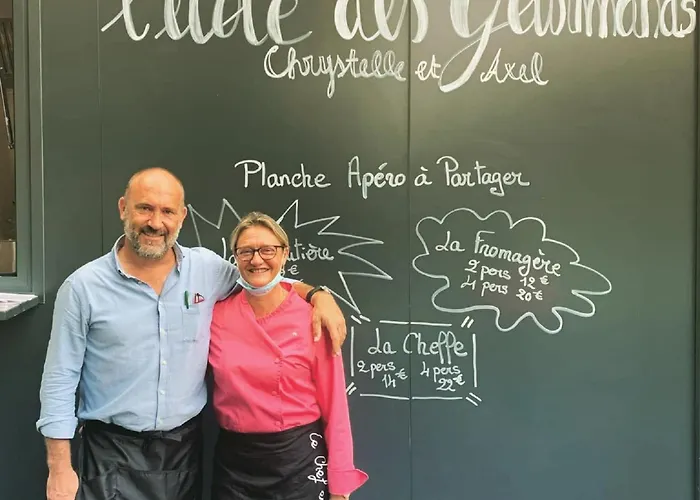 des Gourmands
Chrystelle et Axel
Planche Apéro à Partager
La Fromagère
2 pers 12€
4 pers 20€
La Cheffe
2 pers 4 pers
14€ 22€